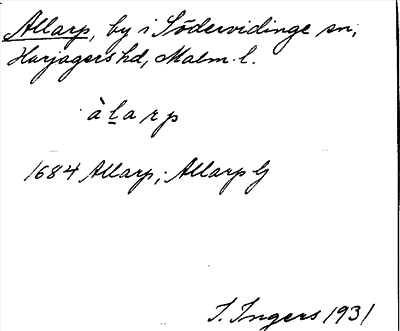 Allarp, by i Södervidinge sn,
Harjagers hd, Malm. l.
àlarp
1684 Allarp; Allarp G
I. Ingers 1931